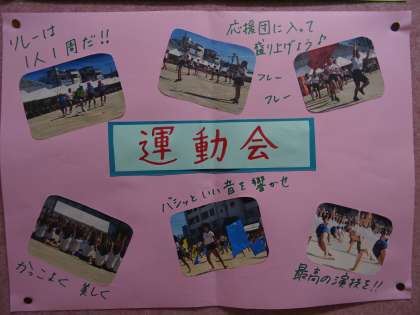 リレーは
1人1周だ!!
応援団に入って
盛り上げよう♪
フレー
フレー
運動会
バシッといい音を響かせ
かっこよく 美しく
最高の演技を!!